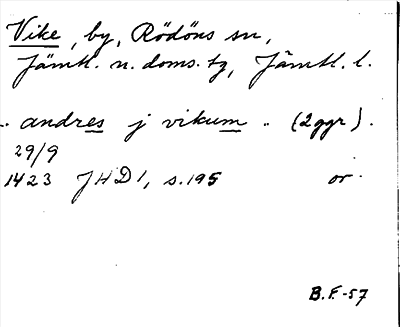 Vike, by, Rödöns sn,
Jämtl. n. doms. tg, Jämtl. l.
.. andres j vikum .. (2ggr).
29/9
1423 JHD 1, s. 195 or.
B.F.-57